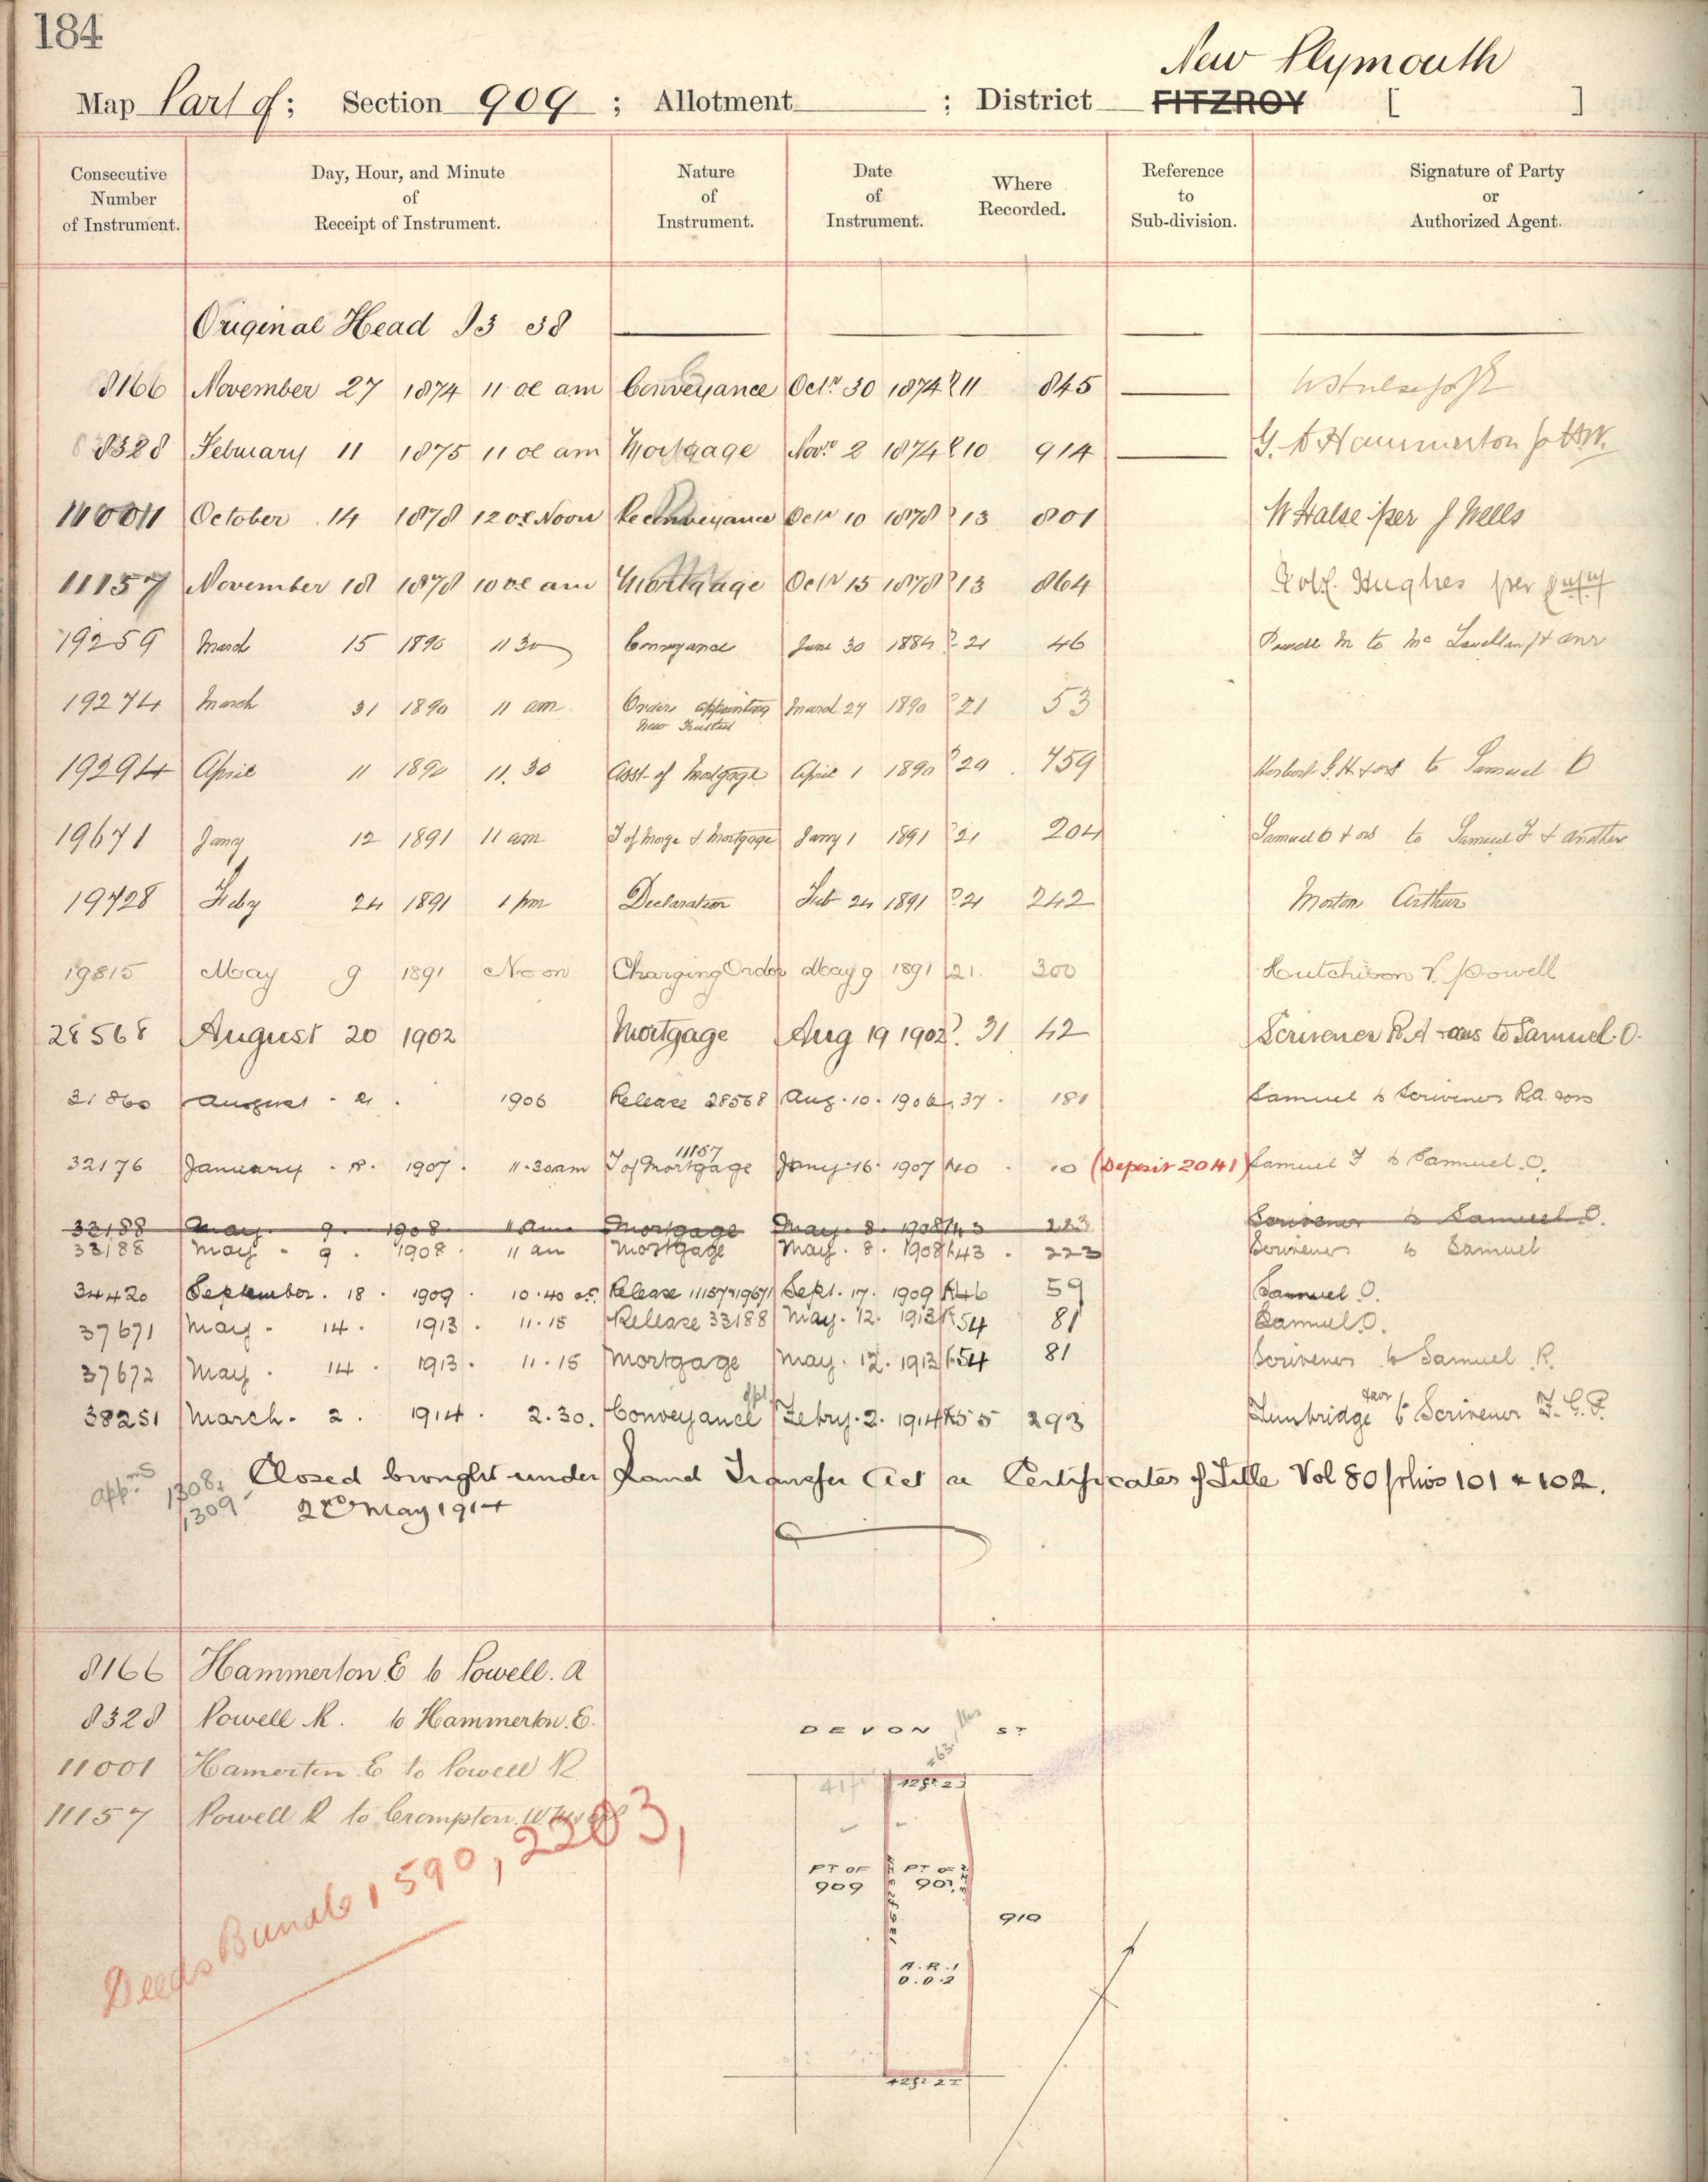 184
New Plymouth
Map Part of; Section 909 ; Allotment ; District FITZROY [ ]
Consecutive Number of Instrument. Day, Hour, and Minute of Receipt of Instrument. Nature of Instrument. Date of Instrument. Where Recorded. Reference to Sub-division. Signature of Party or Authorized Agent.
Original Head B 38
8166 November 27 1874 11 oc am Conveyance Octr 30 1874 R 11 845
8328 February 11 1875 11 oc am Mortgage Novr 2 1874 R 10 914 Hammerton
11001 October 14 1878 12 oc Noon Reconveyance Octr 10 1878 R 13 801 W Halse per J Wells
11157 November 18 1878 10 oc am Mortgage Octr 15 1878 R 13 864 Robt. Hughes per
19259 March 15 1890 11 30 Conveyance June 30 1884 R 21 46 Powell M to Mc & anr
19274 March 31 1890 11 am Order appointing new Trustees March 27 1890 R 21 53
19294 April 11 1890 11.30 Asst. of Mortgage April 1 1890 R 20 759 to Samuel O
19671 Jany 12 1891 11 am T of Morge & Mortgage Jany 1 1891 R 21 204 Samuel O & ors to Samuel F & another
19728 Feby 24 1891 1 pm Declaration Feb 24 1891 R 21 242 Morton Arthur
19815 May 9 1891 Noon Charging Order May 9 1891 R 21. 300 Hutchison V. Powell
28568 August 20 1902 Mortgage Aug 19 1902 R. 31 42 Scrivener R.A & ors to Samuel. O.
31860 August . 21 . 1906 Release 28568 Aug. 10. 1906 R 37 . 181 Samuel to Scrivener R.A. & ors
32176 January . 18. 1907 . 11.30am T of Mortgage 11157 Jany. 16. 1907 R 40 . 10 (Deposit 2041) Samuel F to Samuel. O.
33188 May. 9. 1908 11 am Mortgage May. 8. 1908 R 43 223 Scrivener to Samuel O.
33188 May . 9 . 1908. 11 am Mortgage May. 8. 1908 R 43 . 223 Scrivener to Samuel
34420 September. 18 . 1909 . 10.40 oc. Release 11157 & 19671 Sept. 17. 1909 R 46 59 Samuel O.
37671 May . 14 . 1913 . 11.15 Release 33188 May. 12. 1913 R 54 81 Samuel O.
37672 May . 14 . 1913 . 11.15 Mortgage May. 12. 1913 R 54 81 Scrivener to Samuel R.
38251 March . 2 . 1914 . 2.30. Conveyance Febry. 2. 1914 R 55 293 Humbridge & anr to Scrivener F. C. P.
Appns 1308, 1309 Closed brought under Land Transfer Act see Certificates of Title Vol 80 folios 101 & 102.
22nd May 1914
8166 Hammerton E to Powell. R
8328 Powell R. to Hammerton. E.
11001 Hamerton E to Powell R
11157 Powell R to Crompton W
Deeds Bundle 1590, 2203,
DEVON ST
PT OF 909
PT OF 909
910
A. R. P
0. 0. 2